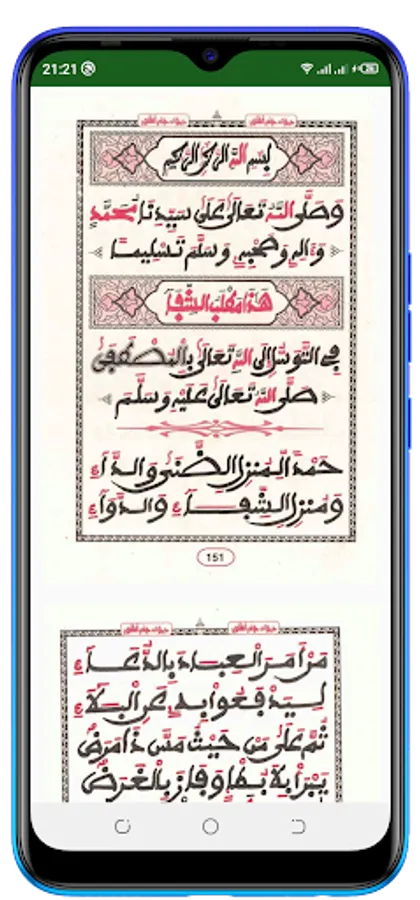 21:21
بِسْمِ اللَّهِ الرَّحْمَنِ الرَّحِيمِ
وَصَلَّى اللَّهُ تَعَالَى عَلَى سَيِّدِنَا مُحَمَّدٍ
وَءَالِهِ وَصَحْبِهِ وَسَلَّمَ تَسْلِيمًا
هَذَا مَطْلَبُ الشِّفَاءِ
فِي التَّوَسُّلِ إِلَى اللَّهِ تَعَالَى بِالْمُصْطَفَى
صَلَّى اللَّهُ تَعَالَى عَلَيْهِ وَسَلَّمَ
حَمْدًا لِمُنْزِلِ الضَّنَى وَالدَّاءِ
وَمُنْزِلِ الشِّفَاءِ وَالدَّوَاءِ
151
مَنْ أَمَرَ الْعِبَادَ بِالدُّعَاءِ
لِيَدْفَعُوا بِهِ عَنِ الْبَلَاءِ
ثُمَّ عَلَى مَنْ حَيْثُ مَسَّ ذَا مَرَضْ
يَبْرَا بِهِ بِهَا وَفَازَ بِالْغَرَضْ